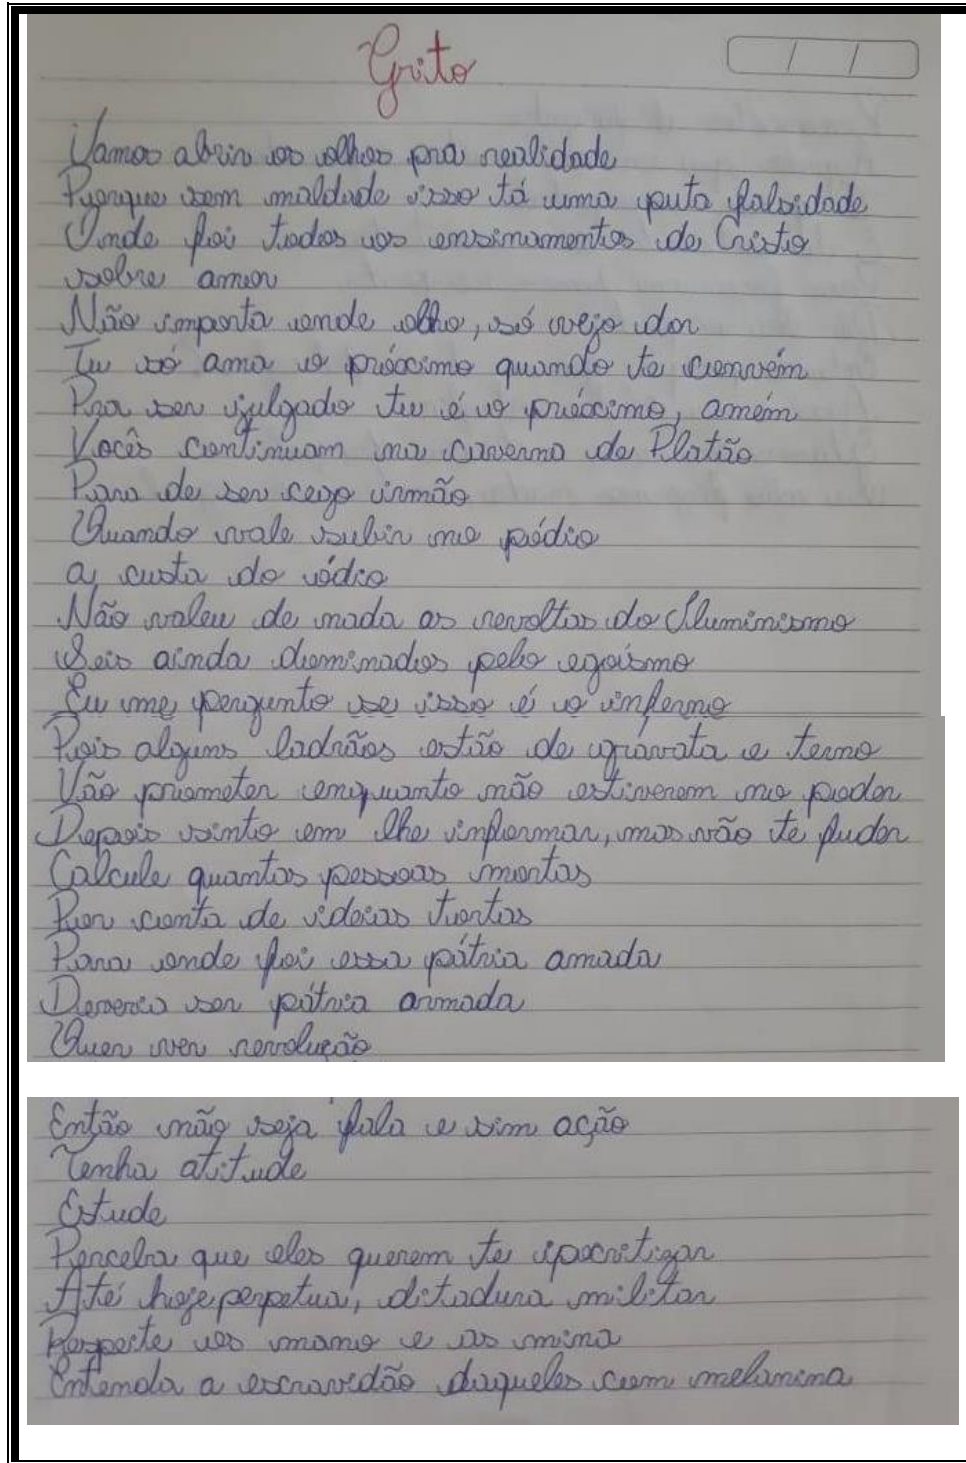 Grito
/ /
Vamos abrir os olhos pra realidade
Porque sem maldade isso tá uma puta falsidade
Onde foi todos os ensinamentos de Cristo
sobre amor
Não importa onde olho, só vejo dor
Tu só ama o próximo quando te convém
Pra ser julgado tu é o próximo, amém
Vocês continuam na caverna de Platão
Para de ser cego irmão
Quando vale subir no pódio
a custa do ódio
Não valeu de nada as revoltas do Iluminismo
Seis ainda dominados pelo egoísmo
Eu me pergunto se isso é o inferno
Pois alguns ladrãos estão de gravata e terno
Vão prometer enquanto não estiverem no poder
Depois sinto em lhe informar, mas vão te fuder
Calcule quantas pessoas mortas
Por conta de ideias tortas
Para onde foi essa pátria amada
Deveria ser pátria armada
Quer ver revolução
Então não seja fala e sim ação
Tenha atitude
Estude
Perceba que eles querem te ipocritizar
Até hoje perpetua, ditadura militar
Respeite os mano e as mina
Entenda a escravidão daqueles com melanina